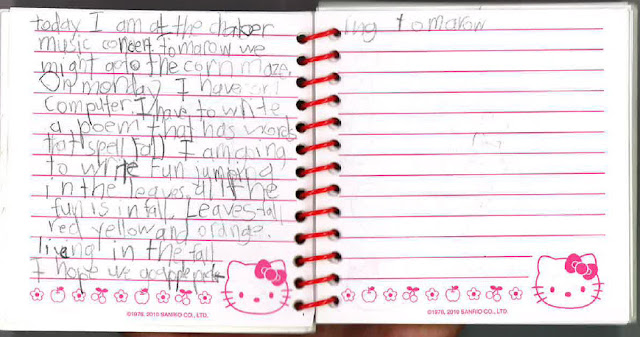 today I am at the chaber
music concert. tomarow we
might goto the corn maze.
On monday I have art
computer. I have to write
a poem that has words
that spell fall I am going
to write Fun jumping
in the leaves. all the
fun is in fall. Leaves fall
red yellow and orange.
living in the fall
I hope we are apple pick
©1976, 2010 SANRIO CO., LTD.
ing tomarow
©1976, 2010 SANRIO CO., LTD.